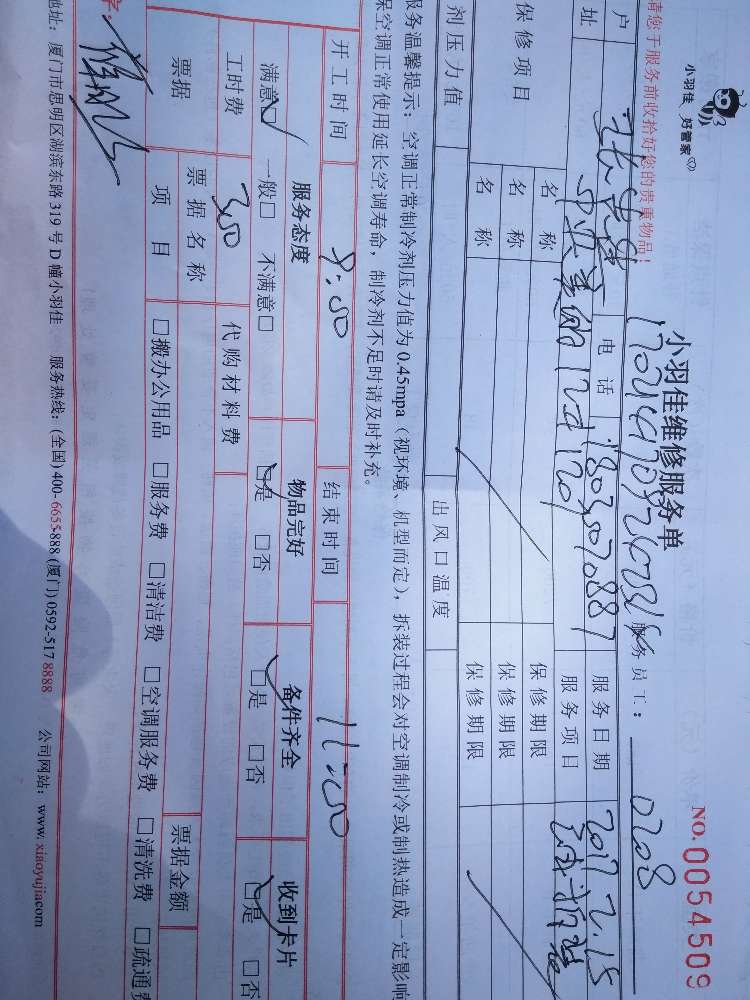 小羽佳 好管家
小羽佳维修服务单
NO.0054509
请您于服务前收拾好您的贵重物品！
服务员工：0708
户 电话 18030570887 服务日期 2017 2.15
址 服务项目
保修项目 名称 保修期限
名称 保修期限
名称 保修期限
剂压力值 出风口温度
服务温馨提示：空调正常制冷剂压力值为0.45mpa（视环境、机型而定），拆装过程会对空调制冷或制热造成一定影响
保空调正常使用延长空调寿命，制冷剂不足时请及时补充。
开工时间 8:50 结束时间 11:50
服务态度 物品完好 备件齐全 收到卡片
满意□ 一般□ 不满意□ □是 □否 □是 □否 □是 □否
工时费 350 代购材料费
票据 票据名称 票据金额
项目 □搬办公用品 □服务费 □清洁费 □空调服务费 □清洗费 □疏通费
字：
地址：厦门市思明区湖滨东路319号D幢小羽佳 服务热线：(全国)400-6655-888 (厦门) 0592-517 8888 公司网站：www.xiaoyujia.com